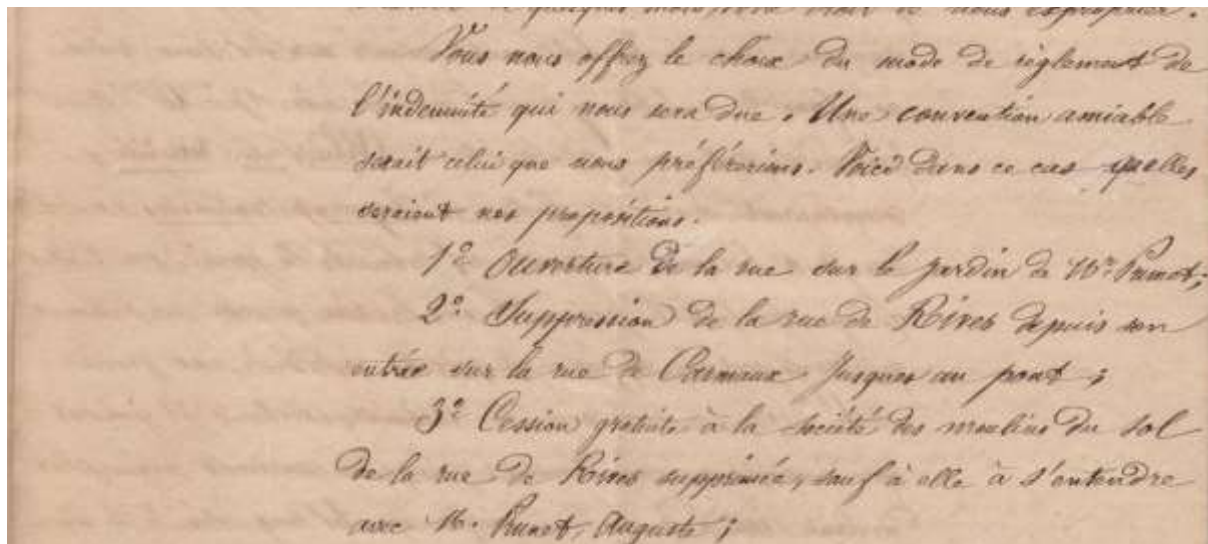 de nous exproprier.
Vous nous offrez le choix du mode de règlement de
l'indemnité qui nous sera due. Une convention amiable
serait celui que nous préférerions. Voici dans ce cas quelles
seraient nos propositions.
1º Ouverture de la rue sur le jardin de Mr Prunet;
2º Suppression de la rue de Rives depuis son
entrée sur la rue de Carmaux jusques au pont;
3º Cession gratuite à la société des moulins du sol
de la rue de Rives supprimée, sauf à elle à s'entendre
avec M. Prunet, Auguste;